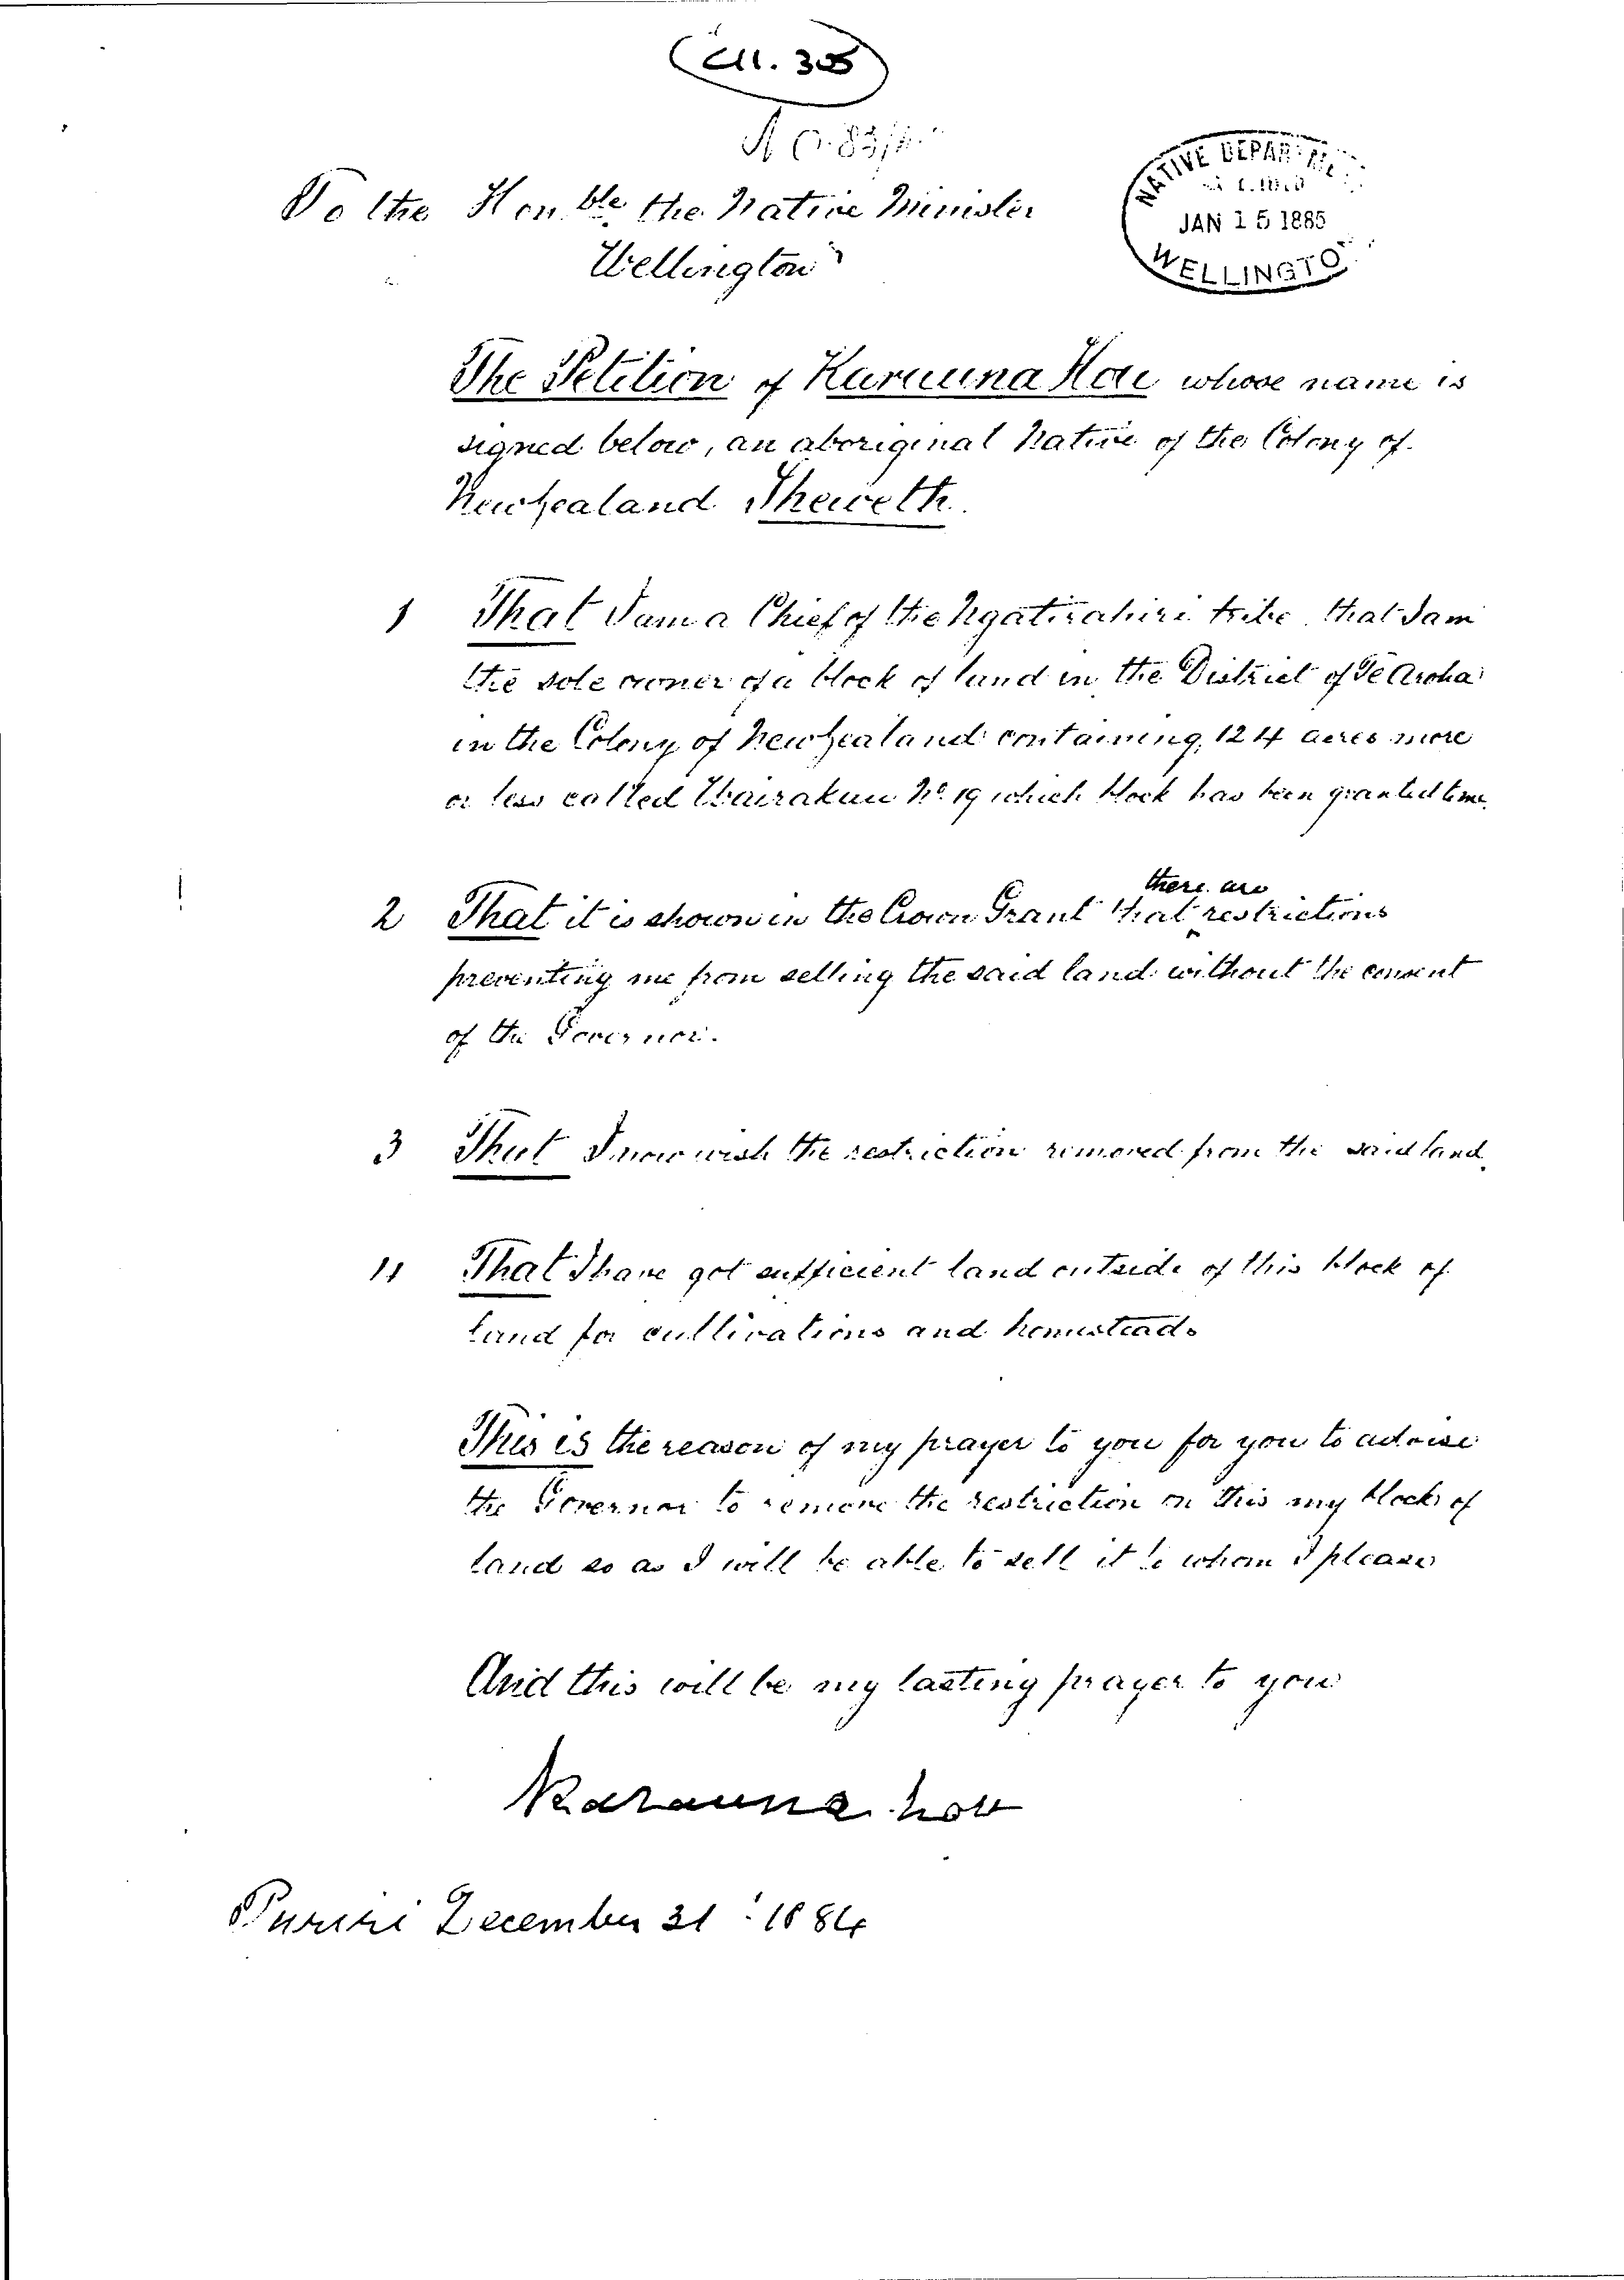 To the Hon.ble the Native Minister
NATIVE
JAN 15 1885
WELLINGTO
Wellington
The Petition of Karauna Hou whose name is
signed below, an aboriginal Native of the Colony of
New Zealand Sheweth.
1 That I am a Chief of the Ngatirahiri tribe that I am
the sole owner of a block of land in the District of Te Aroha
in the Colony of New Zealand containing 124 acres more
or less called Wairakau No. 19 which block has been granted to me.
there are
2 That it is shown in the Crown Grant that restrictions
preventing me from selling the said land without the consent
of the Governor.
3 That I now wish the restriction removed from the said land.
4 That I have got sufficient land outside of this block of
land for cultivations and homesteads
This is the reason of my prayer to you for you to advise
the Governor to remove the restriction on this my block of
land so as I will be able to sell it to whom I please
And this will be my lasting prayer to you
Karauna hou
Puriri December 31 : 1884